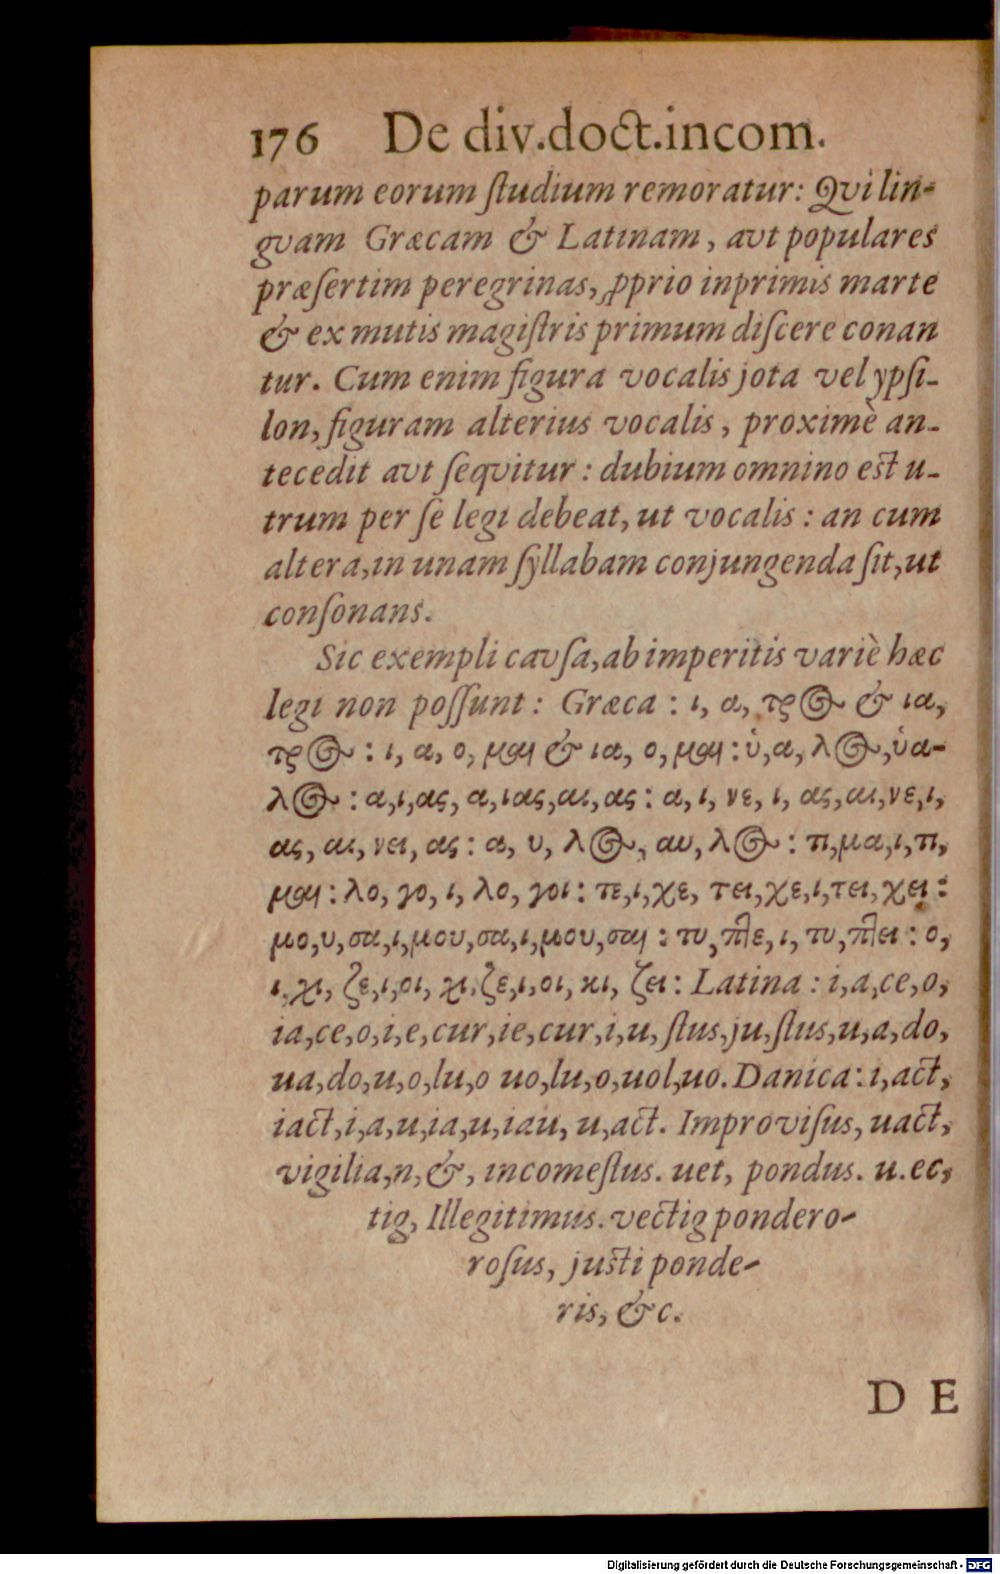 176 De div.doct.incom.
parum eorum ſtudium remoratur: Qvi lin-
gvam Græcam & Latinam, avt populares
præſertim peregrinas, ꝓprio inprimis marte
& ex mutis magiſtris primum diſcere conan
tur. Cum enim figura vocalis jota vel ypſi-
lon, figuram alterius vocalis, proximè an-
tecedit avt ſeqvitur: dubium omnino est u-
trum per ſe legi debeat, ut vocalis: an cum
altera, in unam ſyllabam conjungenda ſit, ut
conſonans.
Sic exempli cavſa, ab imperitis variè hæc
legi non poſſunt: Græca: ι, α, τρ@ & ια,
τρ@: ι, α, ο, μαι & ια, ο, μαι: ὑ, α, λ@, ὑα-
λ@: α,ι,ας, α,ιας,αι,ας: α, ι, νε, ι, ας,αι,νε,ι,
ας, αι, νει, ας: α, υ, λ@, αυ, λ@: π,μα,ι,π,
μαι: λο, γο, ι, λο, γοι: τε,ι,χε, τει,χε,ι,τει,χει:
μο,υ,σα,ι,μου,σα,ι,μου,σαι: τυ,πτε,ι,τυ,πτει: ο,
ι,χι, ζε,ι,οι, χι,ζε,ι,οι, κι, ζει: Latina: i,a,ce,o,
ia,ce,o,i,e,cur,ie,cur,i,u,ſtus,ju,ſtus,u,a,do,
ua,do,u,o,lu,o uo,lu,o,uol,uo. Danica: i,act,
iact,i,a,u,ia,u,iau, u,act. Improviſus, uact,
vigilia,n,&, incomeſtus. uet, pondus. u.ec,
tig, Illegitimus. vectig pondero-
roſus, justi ponde-
ris, &c.
D E
Digitalisierung gefördert durch die Deutsche Forschungsgemeinschaft - DFG